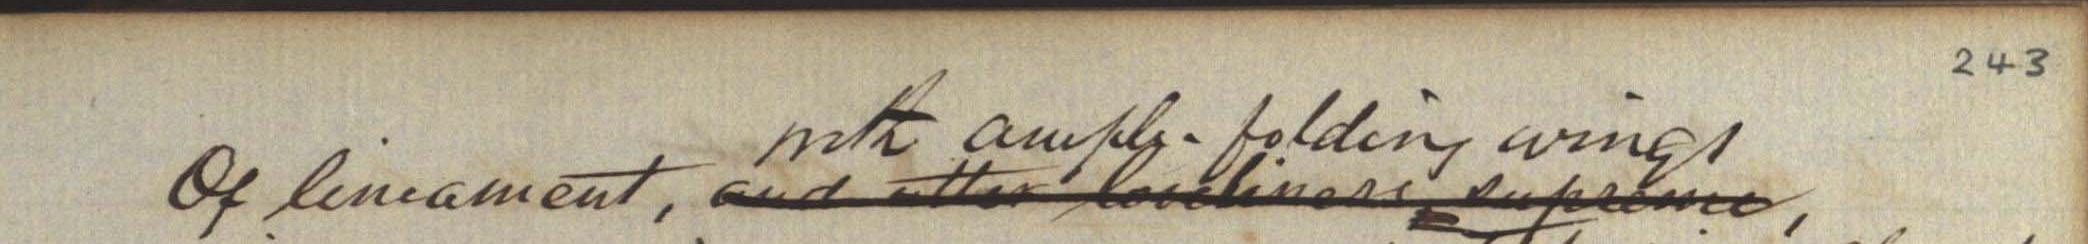 243
with ample-folding wings
Of lineament, and utter loveliness supreme,